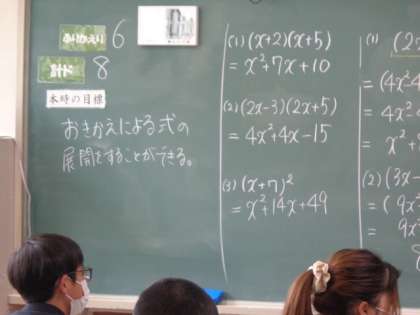 ふりかえり 6
計ド 8
本時の目標
おきかえによる式の
展開をすることができる。
(1) (x+2)(x+5)
= x²+7x+10
(2) (2x-3)(2x+5)
= 4x²+4x-15
(3) (x+7)²
= x²+14x+49
(1) (2x
= (4x²-4
= 4x²-
= x²+
(2) (3x-
= (9x²
= 9x²